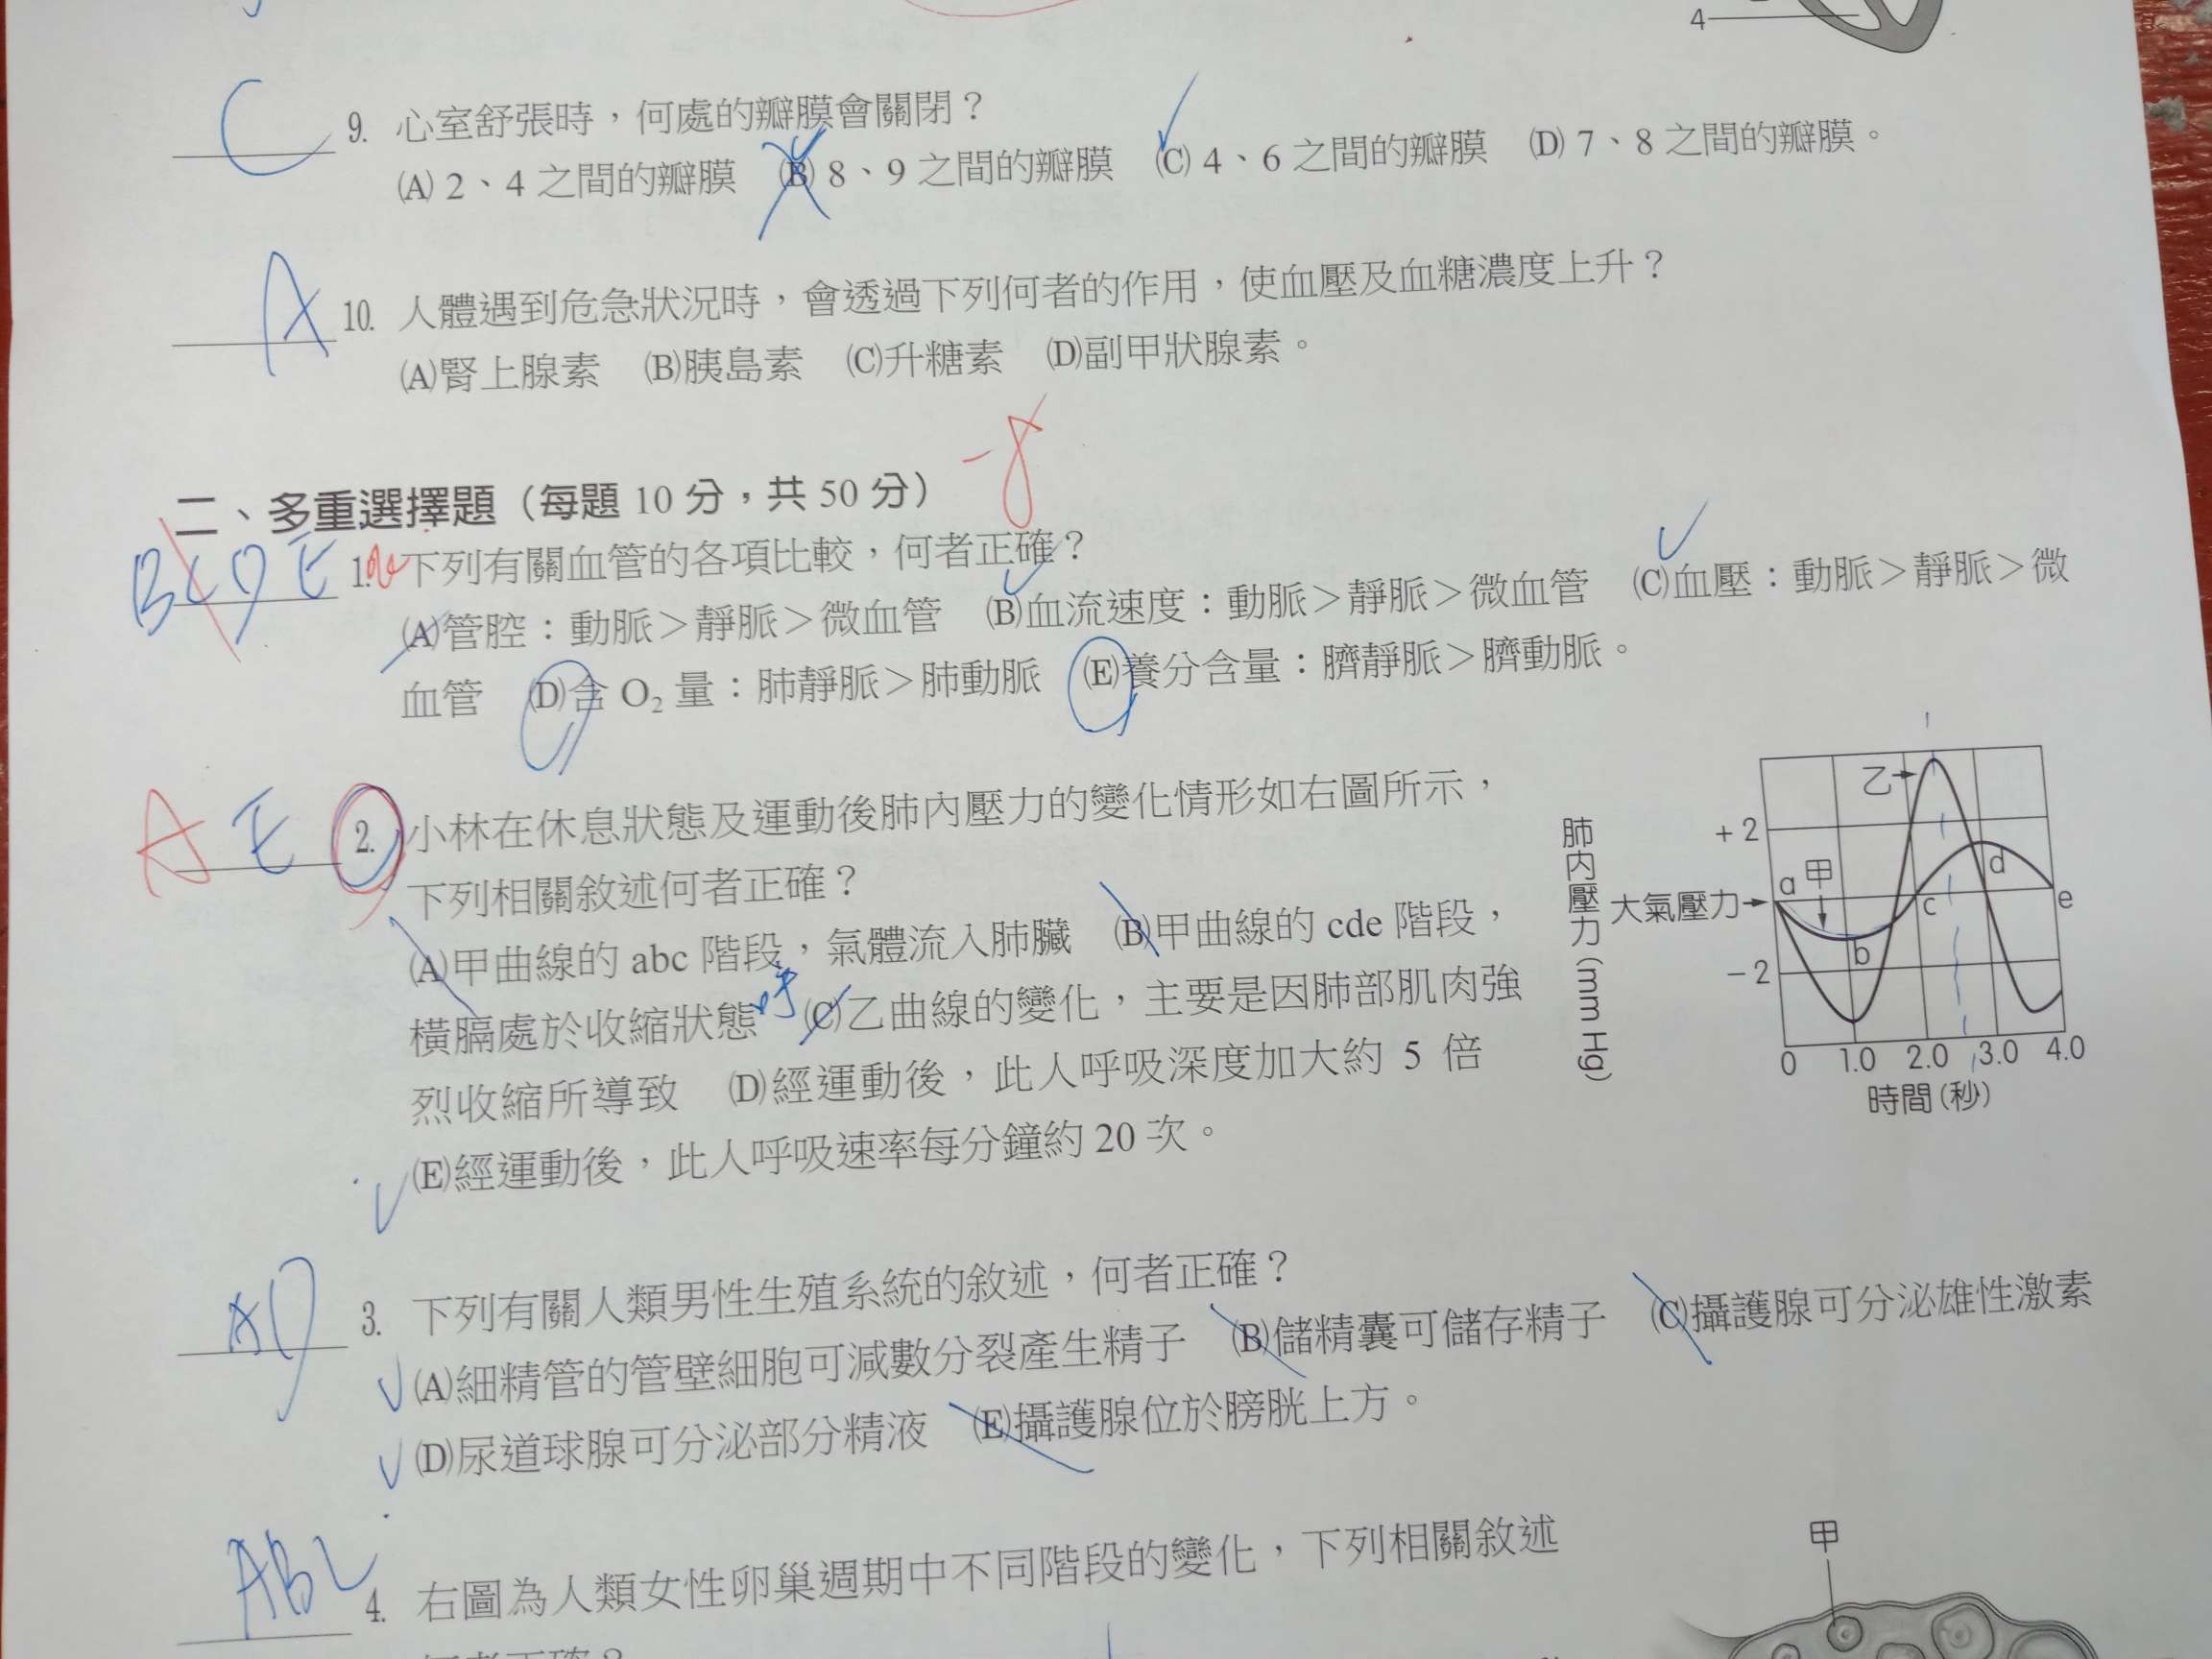 4
C 9. 心室舒張時，何處的瓣膜會關閉？
(A) 2、4 之間的瓣膜 (B) 8、9 之間的瓣膜 (C) 4、6 之間的瓣膜 (D) 7、8 之間的瓣膜。
A 10. 人體遇到危急狀況時，會透過下列何者的作用，使血壓及血糖濃度上升？
(A)腎上腺素 (B)胰島素 (C)升糖素 (D)副甲狀腺素。
-8
二、多重選擇題（每題 10 分，共 50 分）
BCDE 1. 下列有關血管的各項比較，何者正確？
(A)管腔：動脈＞靜脈＞微血管 (B)血流速度：動脈＞靜脈＞微血管 (C)血壓：動脈＞靜脈＞微
血管 (D)含 O₂ 量：肺靜脈＞肺動脈 (E)養分含量：臍靜脈＞臍動脈。
A E 2. 小林在休息狀態及運動後肺內壓力的變化情形如右圖所示，
下列相關敘述何者正確？
(A)甲曲線的 abc 階段，氣體流入肺臟 (B)甲曲線的 cde 階段，
橫膈處於收縮狀態 (C)乙曲線的變化，主要是因肺部肌肉強
烈收縮所導致 (D)經運動後，此人呼吸深度加大約 5 倍
(E)經運動後，此人呼吸速率每分鐘約 20 次。
肺內壓力(mm Hg)
乙
+2
甲
a
d
大氣壓力
c
e
b
-2
0 1.0 2.0 3.0 4.0
時間(秒)
AD 3. 下列有關人類男性生殖系統的敘述，何者正確？
(A)細精管的管壁細胞可減數分裂產生精子 (B)儲精囊可儲存精子 (C)攝護腺可分泌雄性激素
(D)尿道球腺可分泌部分精液 (E)攝護腺位於膀胱上方。
ABC 4. 右圖為人類女性卵巢週期中不同階段的變化，下列相關敘述
何者正確？
甲